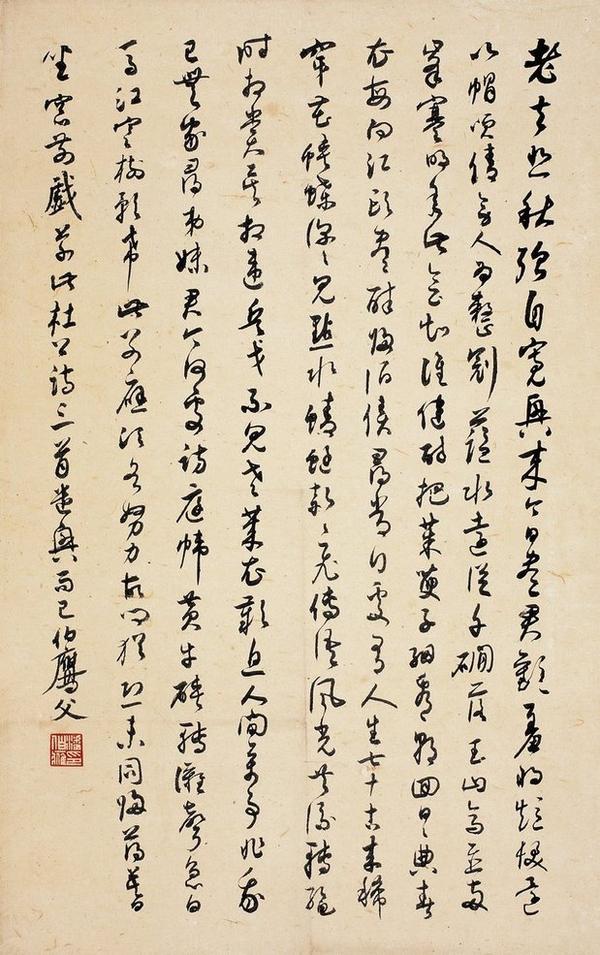 老去悲秋強自寬興來今日盡君歡羞將短髮還
吹帽咲倩旁人為整冠藍水遠從千磵落玉山高並兩
峯寒明年此會知誰健醉把茱萸子細看朝回日日典春
衣每向江頭盡醉歸酒債尋常行處有人生七十古來稀
穿花蛺蝶深〻見點水蜻蜓款〻飛傳語風光共流轉暫
時相賞莫相違兵戈不見老萊衣歎息人間萬事非我
已無家尋弟妹君今何處訪庭幃黃牛峽轉灘聲急白
馬江寒樹影希此別應須各努力故鄉猶恐未同歸薄暮
坐窗前戲草此杜公詩三首遣興而已伯鷹父